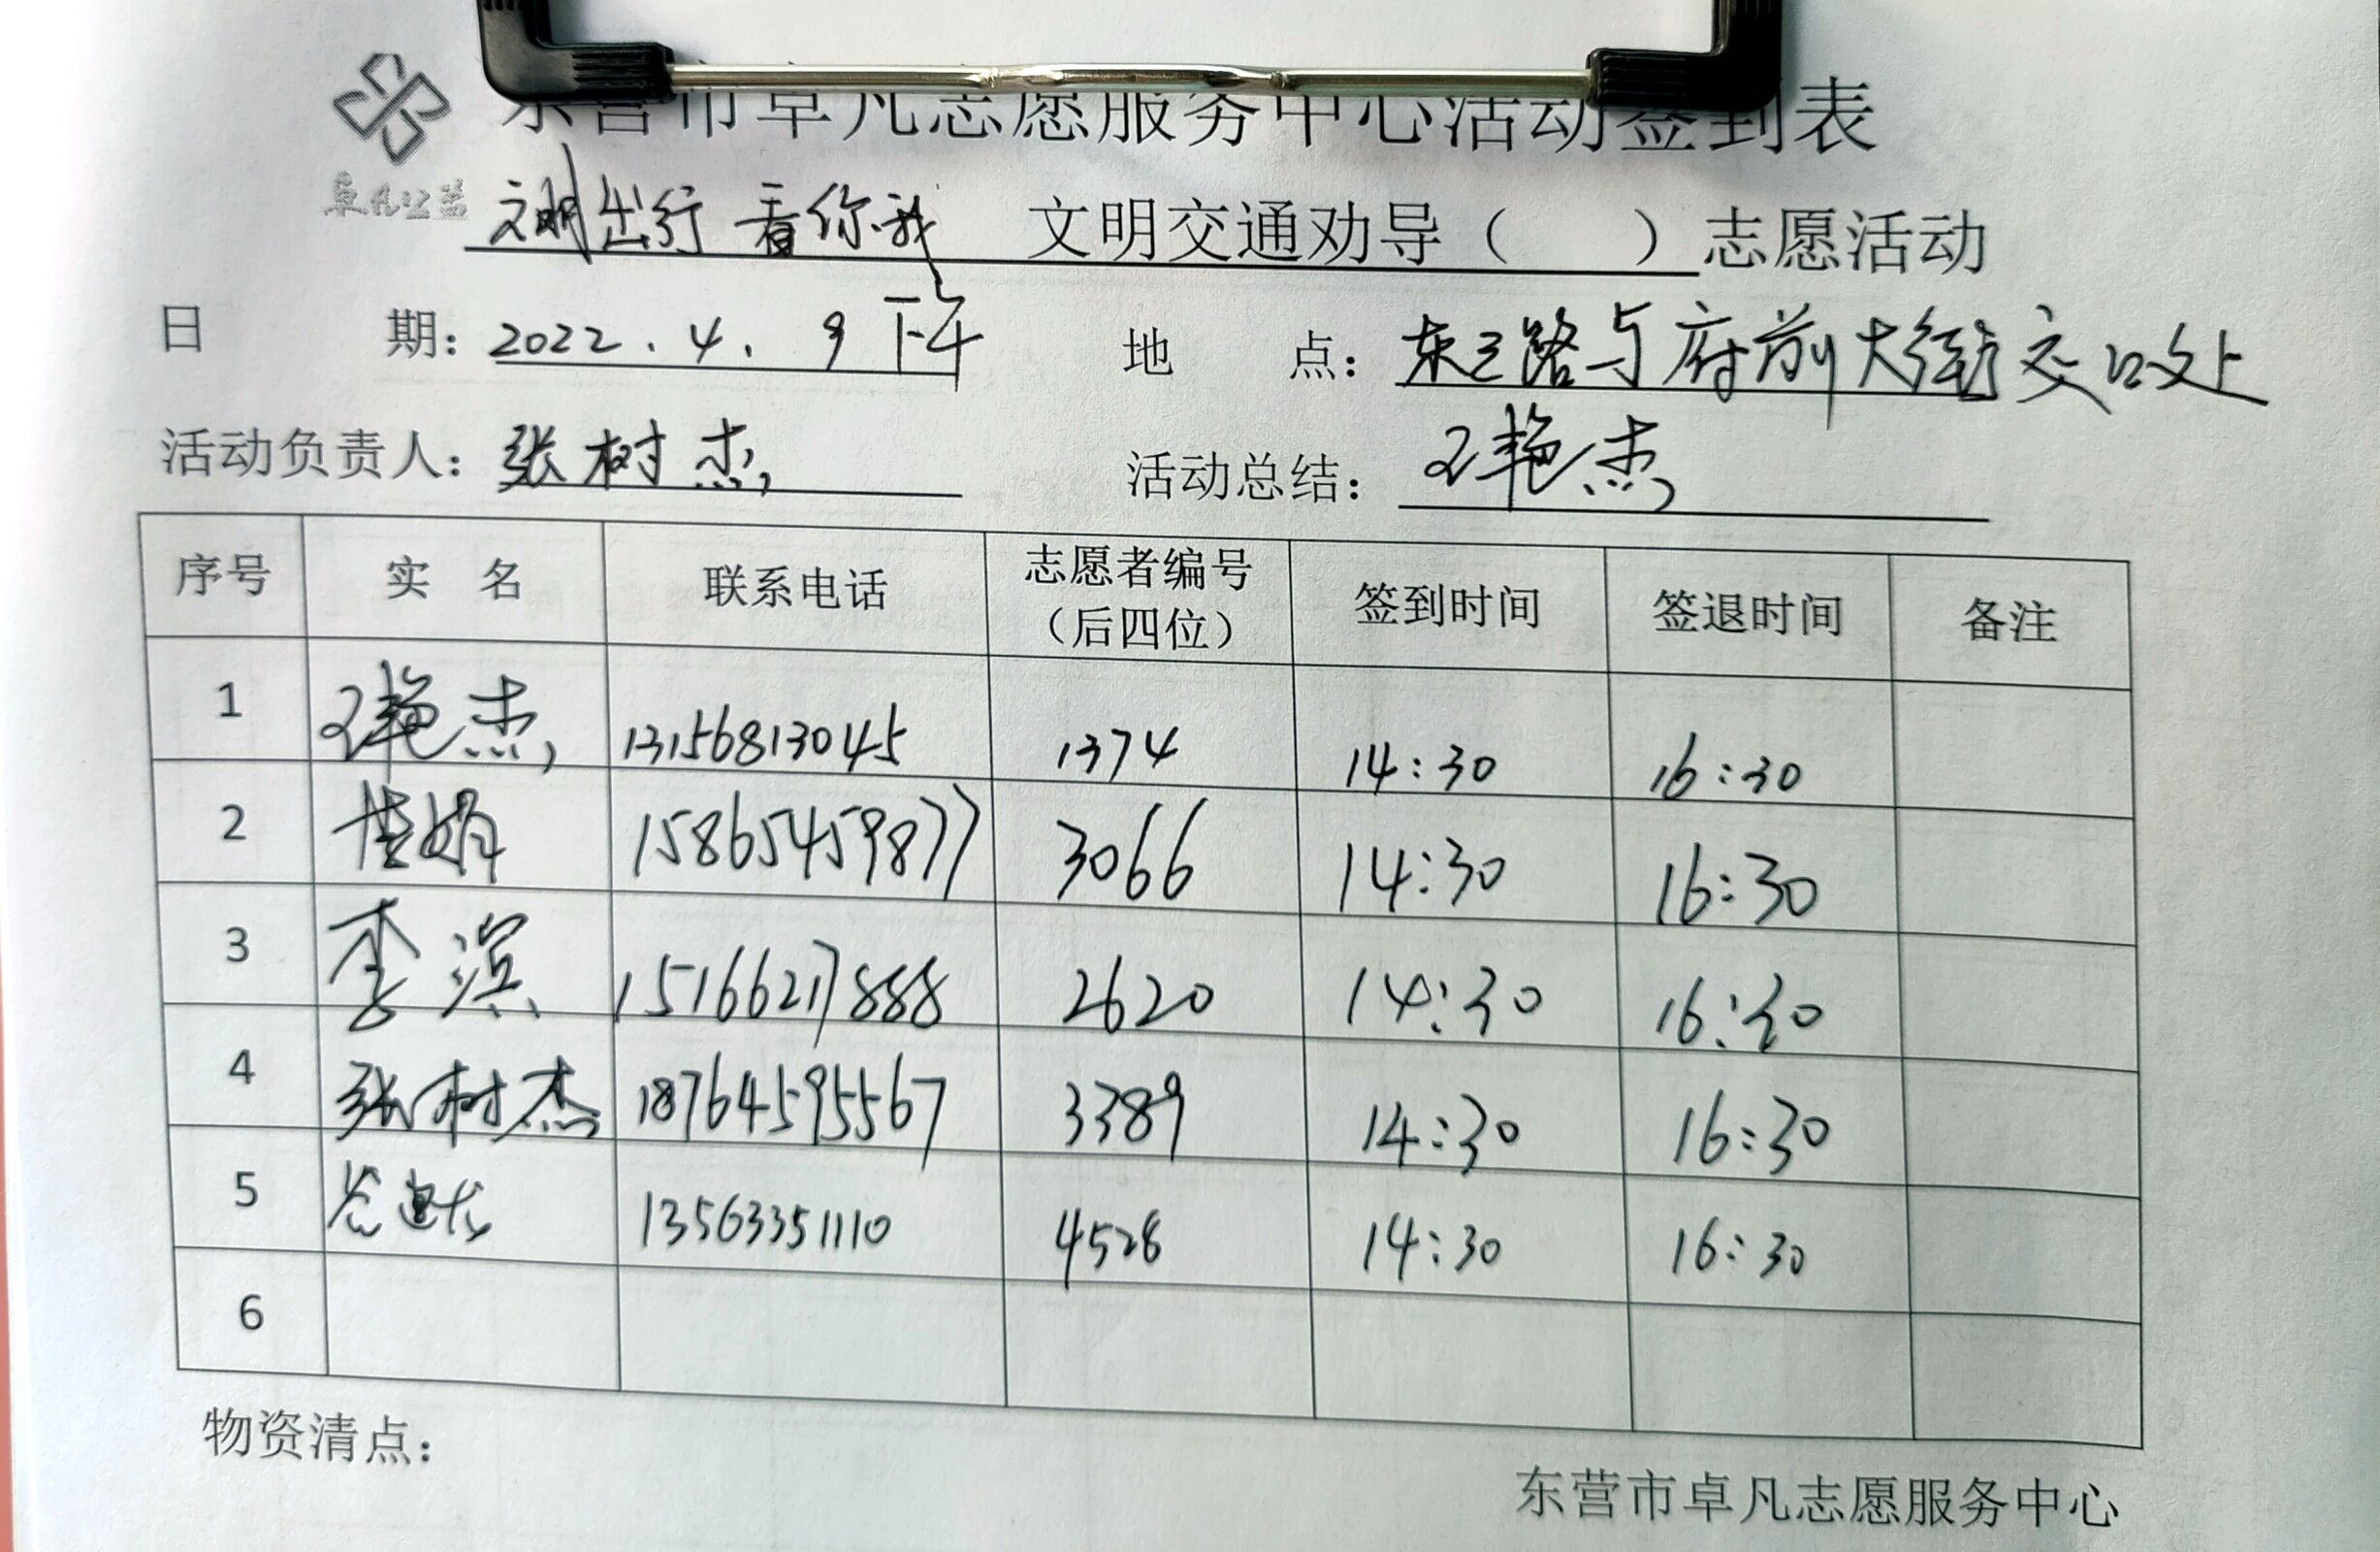 东营市卓凡志愿服务中心活动签到表
卓凡公益
文明出行 看你我 文明交通劝导（ ）志愿活动
日 期：2022.4.9下午 地 点：东三路与府前大街交口处
活动负责人：张树杰 活动总结：王艳杰
序号 实 名 联系电话 志愿者编号（后四位） 签到时间 签退时间 备注
1 王艳杰 13156813045 1374 14:30 16:30
2 15865459877 3066 14:30 16:30
3 李滨 15166217888 2620 14:30 16:30
4 张树杰 18764595567 3389 14:30 16:30
5 13563351110 4528 14:30 16:30
6
物资清点：
东营市卓凡志愿服务中心